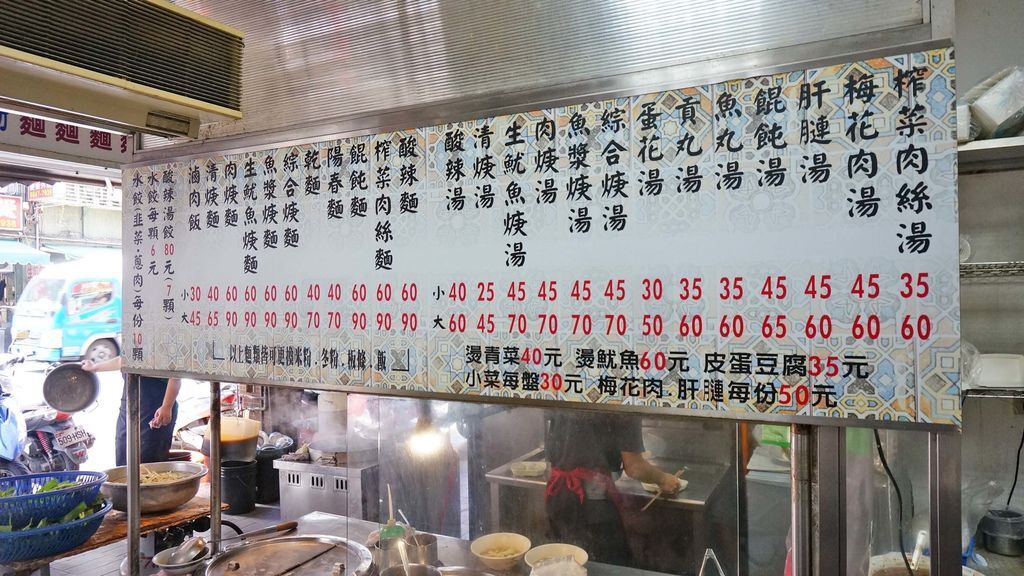 麵麵麵
水餃韭菜.蔥肉-每份10顆
水餃每顆6元
酸辣湯餃80元7顆
滷肉飯
清焿麵
肉焿麵
生魷魚焿麵
魚漿焿麵
綜合焿麵
乾麵
陽春麵
餛飩麵
榨菜肉絲麵
酸辣麵
小 30 40 60 60 60 60 40 40 60 60 60
大 45 65 90 90 90 90 70 70 90 90 90
以上麵類皆可更換米粉.冬粉.板條.飯
酸辣湯
清焿湯
生魷魚焿湯
肉焿湯
魚漿焿湯
綜合焿湯
蛋花湯
貢丸湯
魚丸湯
餛飩湯
肝𦟪湯
梅花肉湯
榨菜肉絲湯
小 40 25 45 45 45 45 30 35 35 45 45 45 35
大 60 45 70 70 70 70 50 60 60 65 60 60 60
燙青菜40元 燙魷魚60元 皮蛋豆腐35元
小菜每盤30元 梅花肉.肝𦟪每份50元